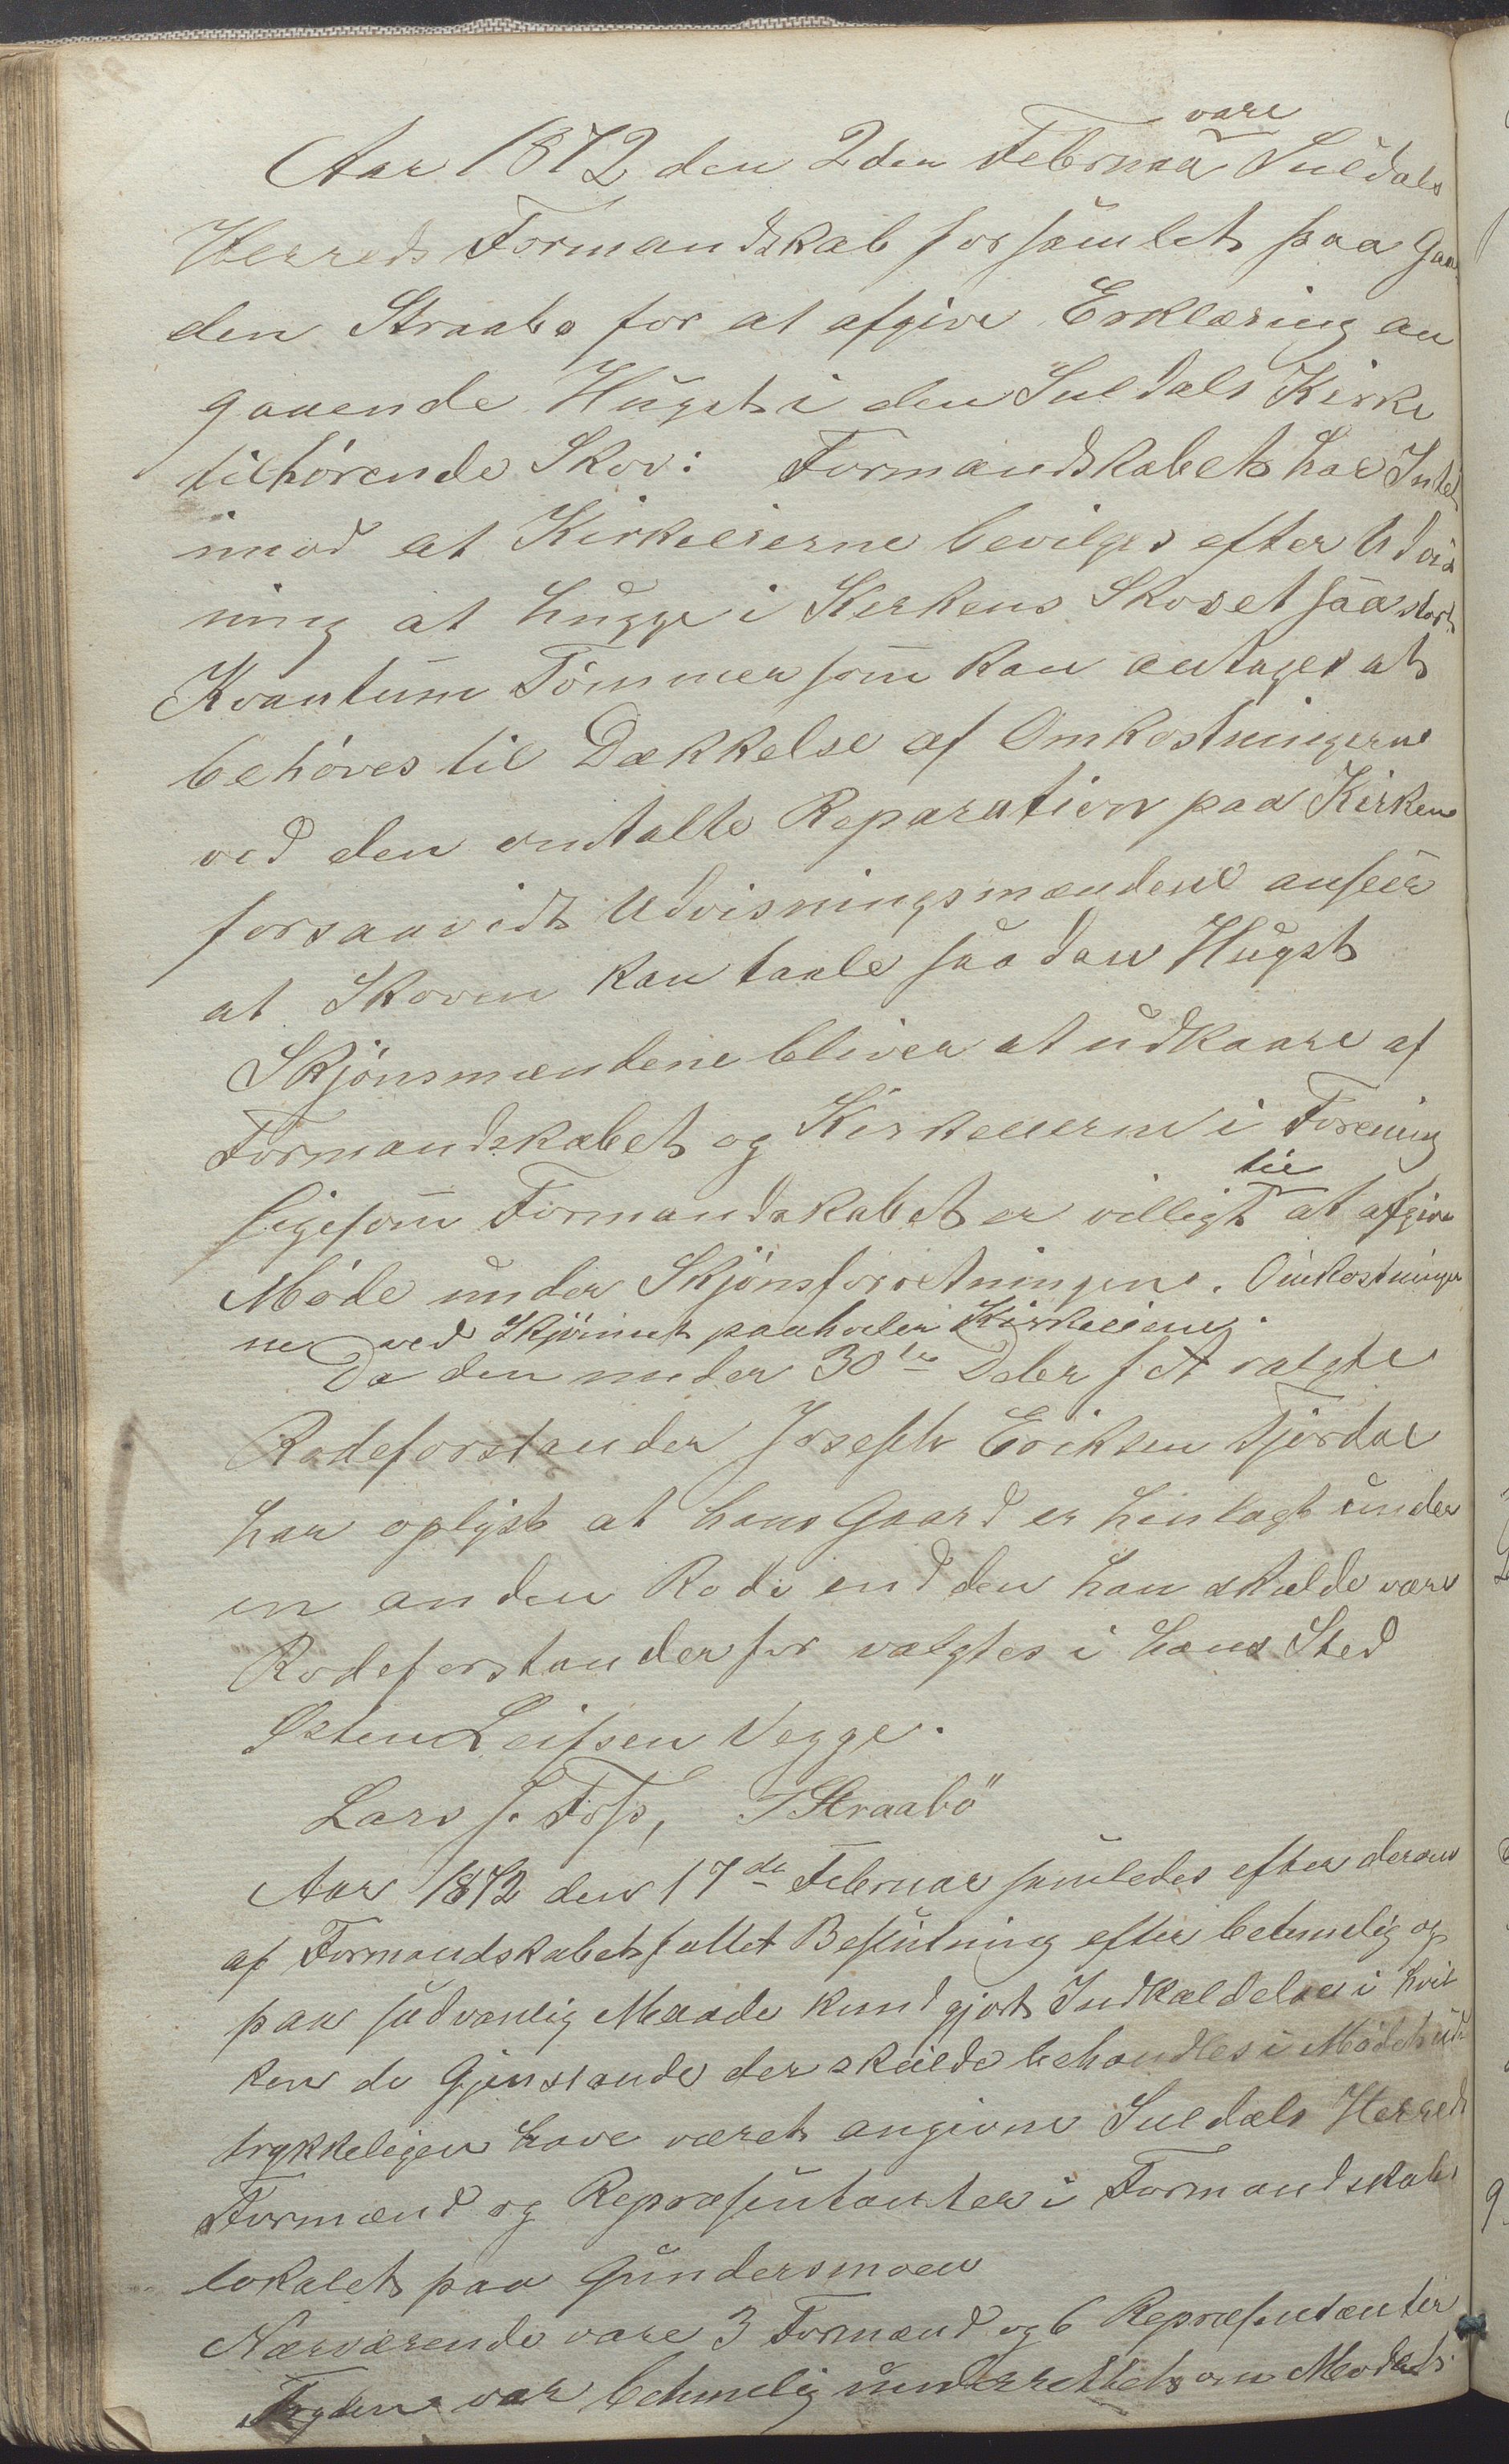 Aar 1872 den 2den Februar vare Suldals
Herreds Formandskab forsamlet paa Gaar
den Straabø for at afgive Erklæring an
gaaende Hugst i den Suldals Kirke
tilhørende Skov: Formandskabet har Intet
imod at Kirkeeierne bevilges efter Udvis
ning at hugge i Kirkens Skov et saa stort
Kvantum Tømmer som kan antages at
behøves til Dækkelse af Omkostningerne
ved den omtalte Reparation paa Kirken
forsaavidt Udvisningsmændene anseer
at Skoven kan taale saadan Hugst
Skjønsmændene bliver at udkaare af
Formandskabet og Kirkeeierne i Forening
ligesom Formandskabet er villigt til at afgive
Møde under Skjønsforretningen. Omkostninger
ne ved Skjønnet paahviler Kirkeeierne.
Da den under 30te Decbr f A valgte
Rodeforstander Joseph Eriksen Fjørdal
har oplyst at hans Gaard er henlagt under
en anden Rode end den han skulde være
Rodeforstander for valgtes i hans Sted
Østen Leifsen Vegge.
Lars J. Foss, T Straabö
Aar 1872 den 17de Februar samledes efter derom
af Formandskabet fattet Beslutning efter betimelig og
paa sædvanlig Maade kundgjort Indkaldelse i hvil
ken de Gjenstande der skulde behandles i Mødet ud
trykkeligen have været angivne Suldals Herreds
Formænd og Repræsentanter i Formandskabs
lokalet paa Gundersmoen
Nærværende vare 3 Formænd og 6 Repræsentanter
Fogden var betimelig underrettet om Mødets